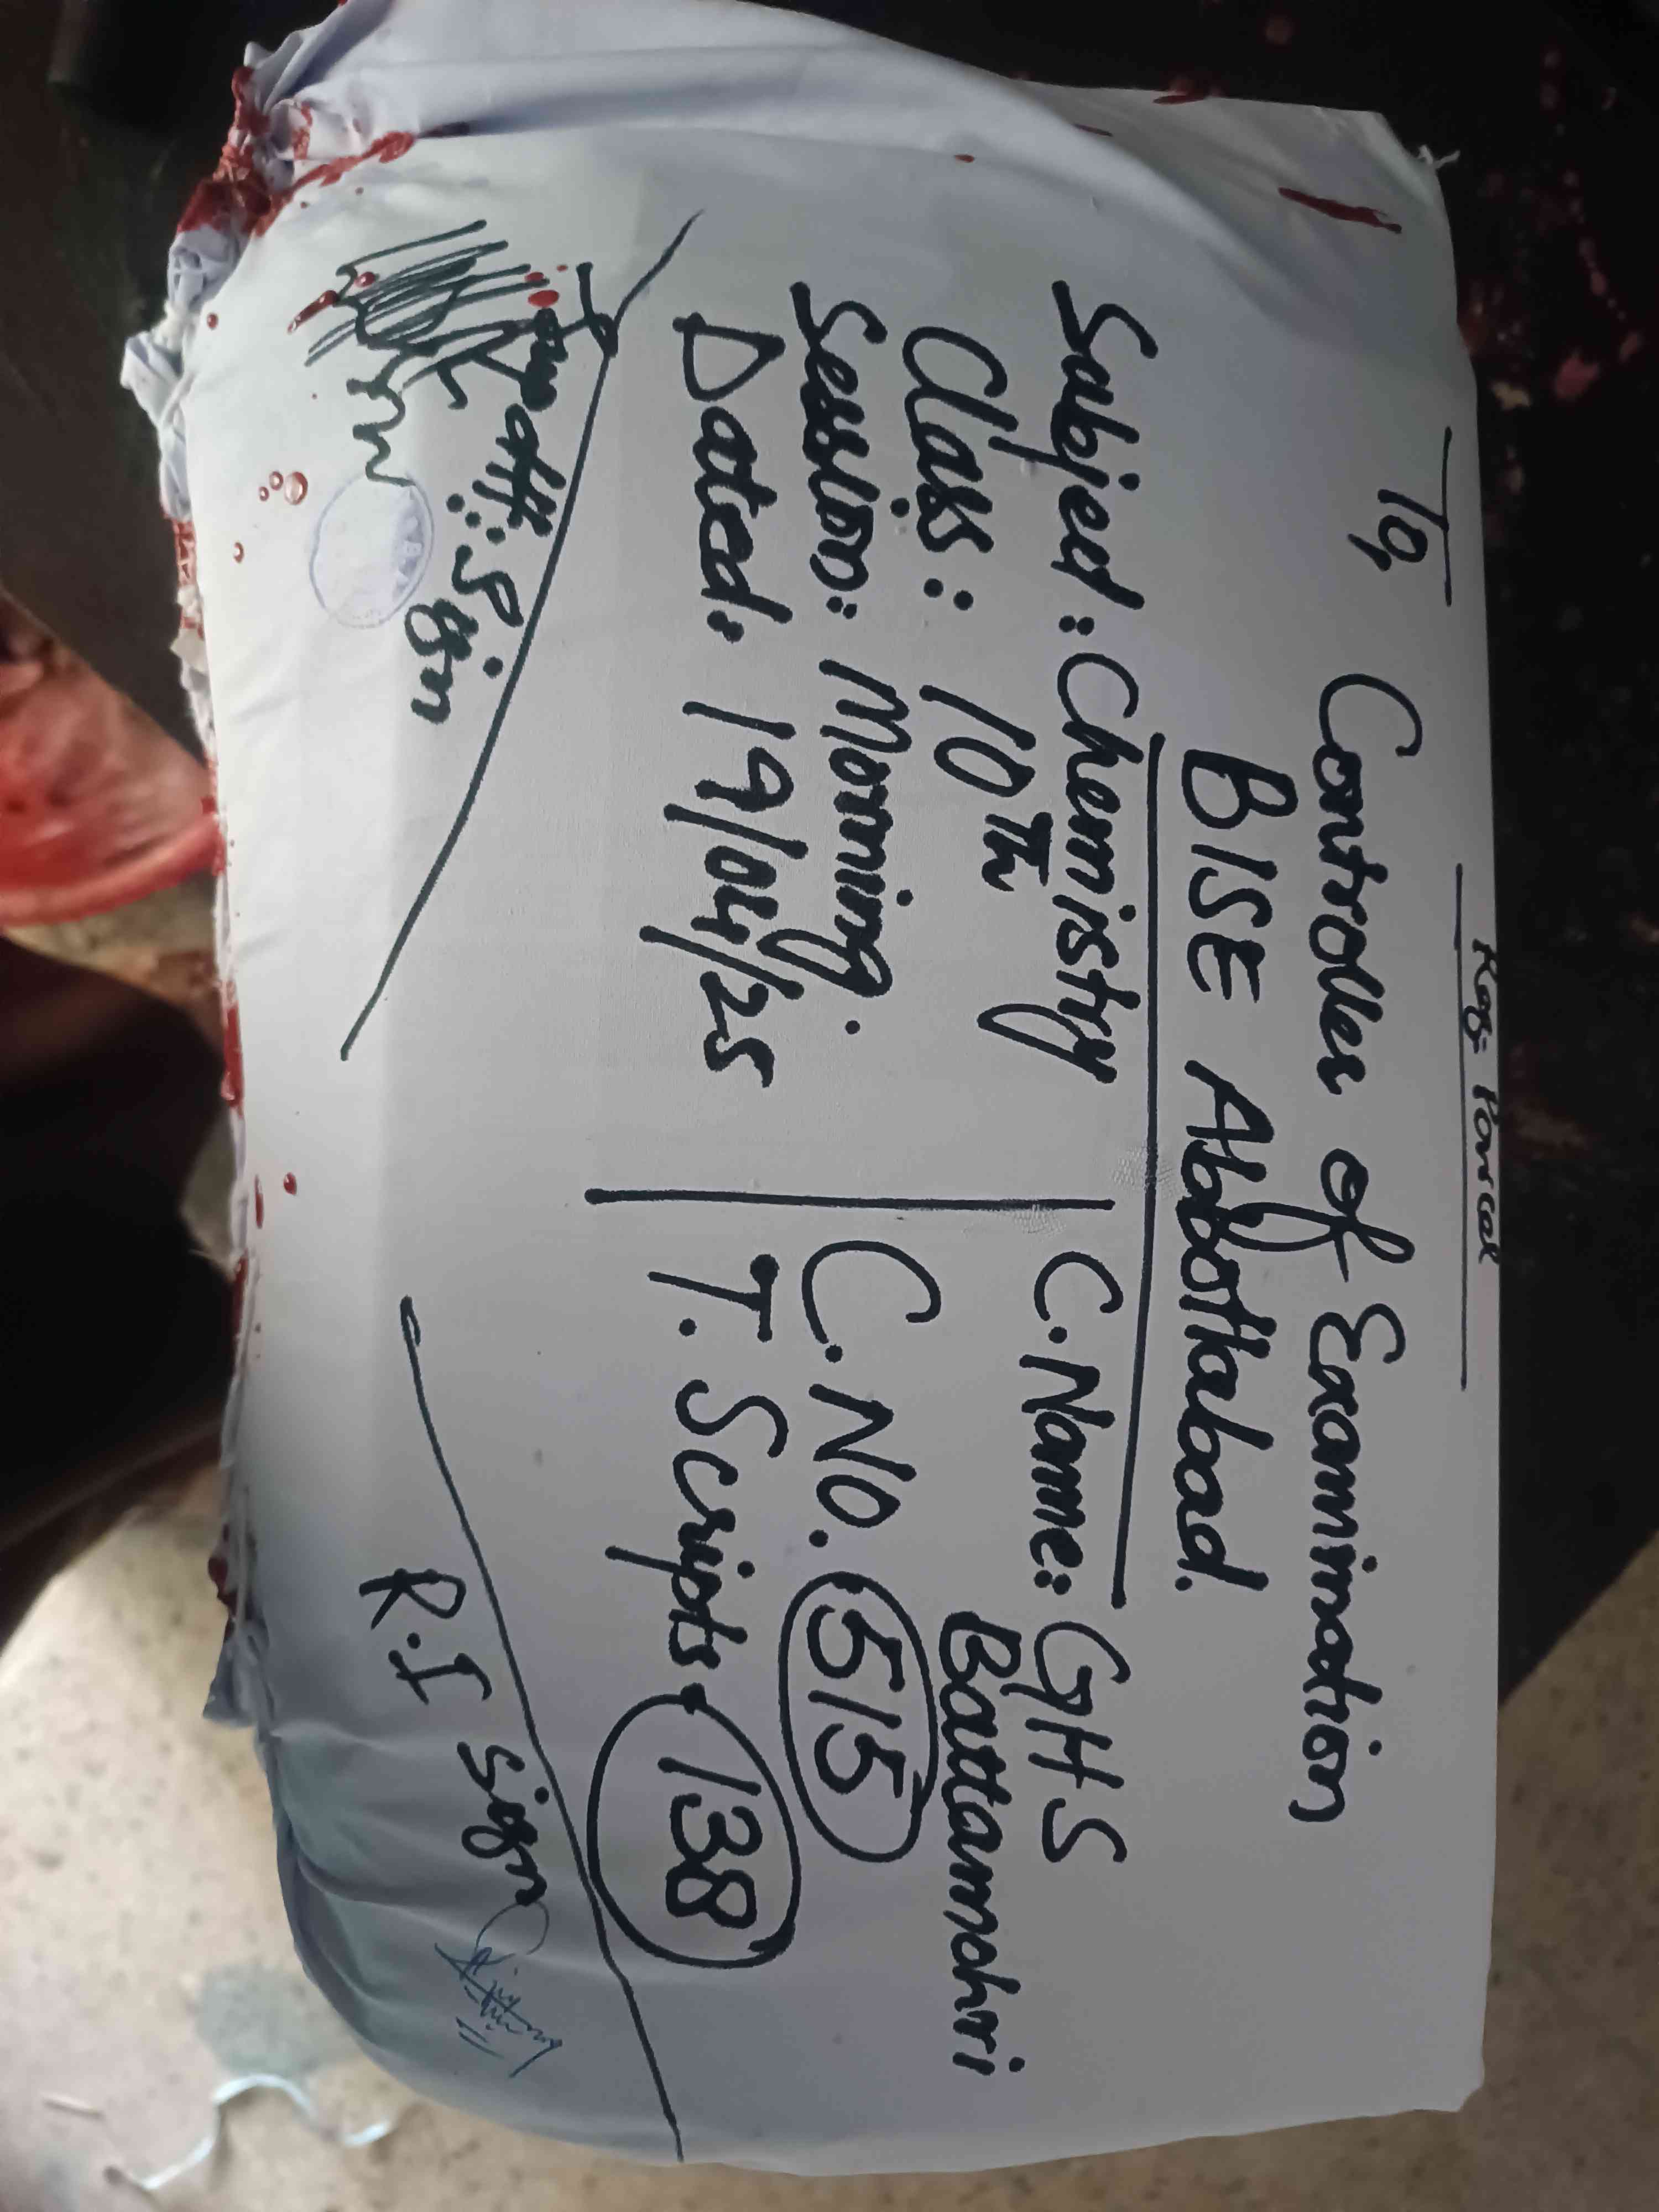 Reg: Parcel
To,
Controller of Examination
BISE Abbottabad.
Subject: Chemistry
Class: 10Th
Session: Morning.
Dated: 19/04/25
C.Name: GHS
Battamohri
C.No. 515
T. Scripts 138
Sign
R.I Sign